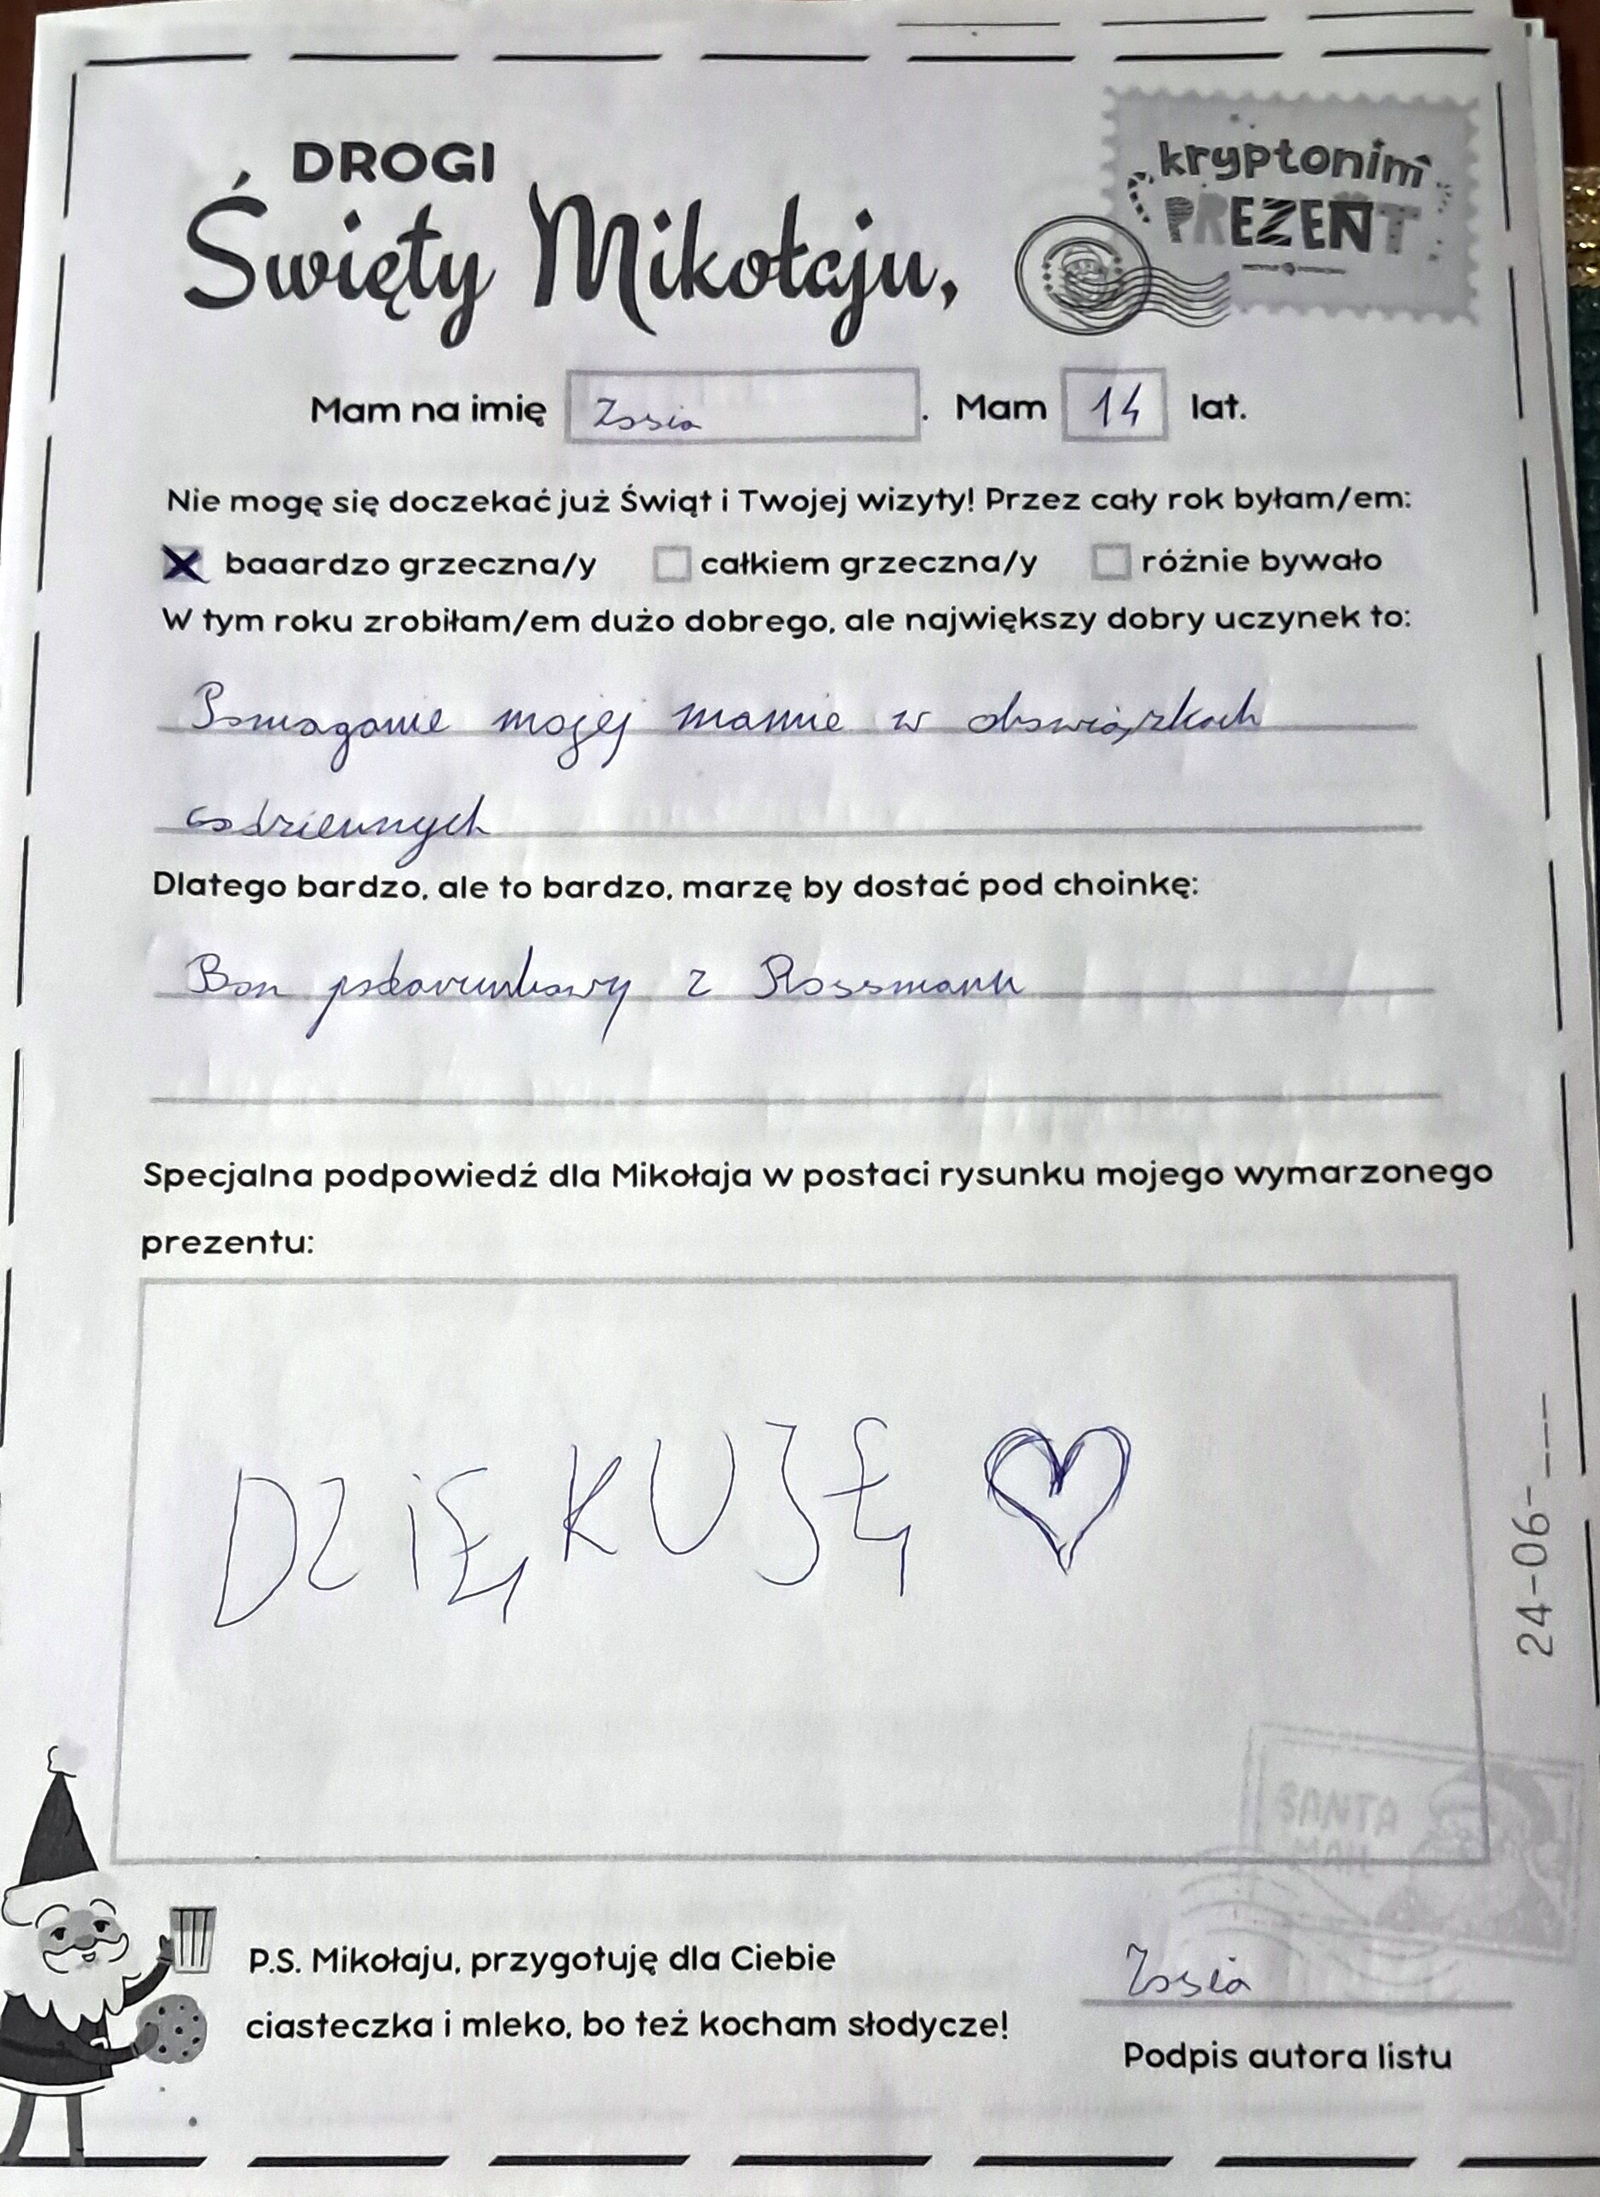 DROGI
Święty Mikołaju,
kryptonim
PREZENT
Mam na imię Zosia. Mam 14 lat.
Nie mogę się doczekać już Świąt i Twojej wizyty! Przez cały rok byłam/em:
X baaardzo grzeczna/y całkiem grzeczna/y różnie bywało
W tym roku zrobiłam/em dużo dobrego, ale największy dobry uczynek to:
Pomaganie mojej mamie w obowiązkach
codziennych
Dlatego bardzo, ale to bardzo, marzę by dostać pod choinkę:
Bon podarunkowy z Rossmann
Specjalna podpowiedź dla Mikołaja w postaci rysunku mojego wymarzonego
prezentu:
DZIĘKUJĘ ♡
24-06-___
SANTA
MAIL
P.S. Mikołaju, przygotuję dla Ciebie
ciasteczka i mleko, bo też kocham słodycze!
Zosia
Podpis autora listu